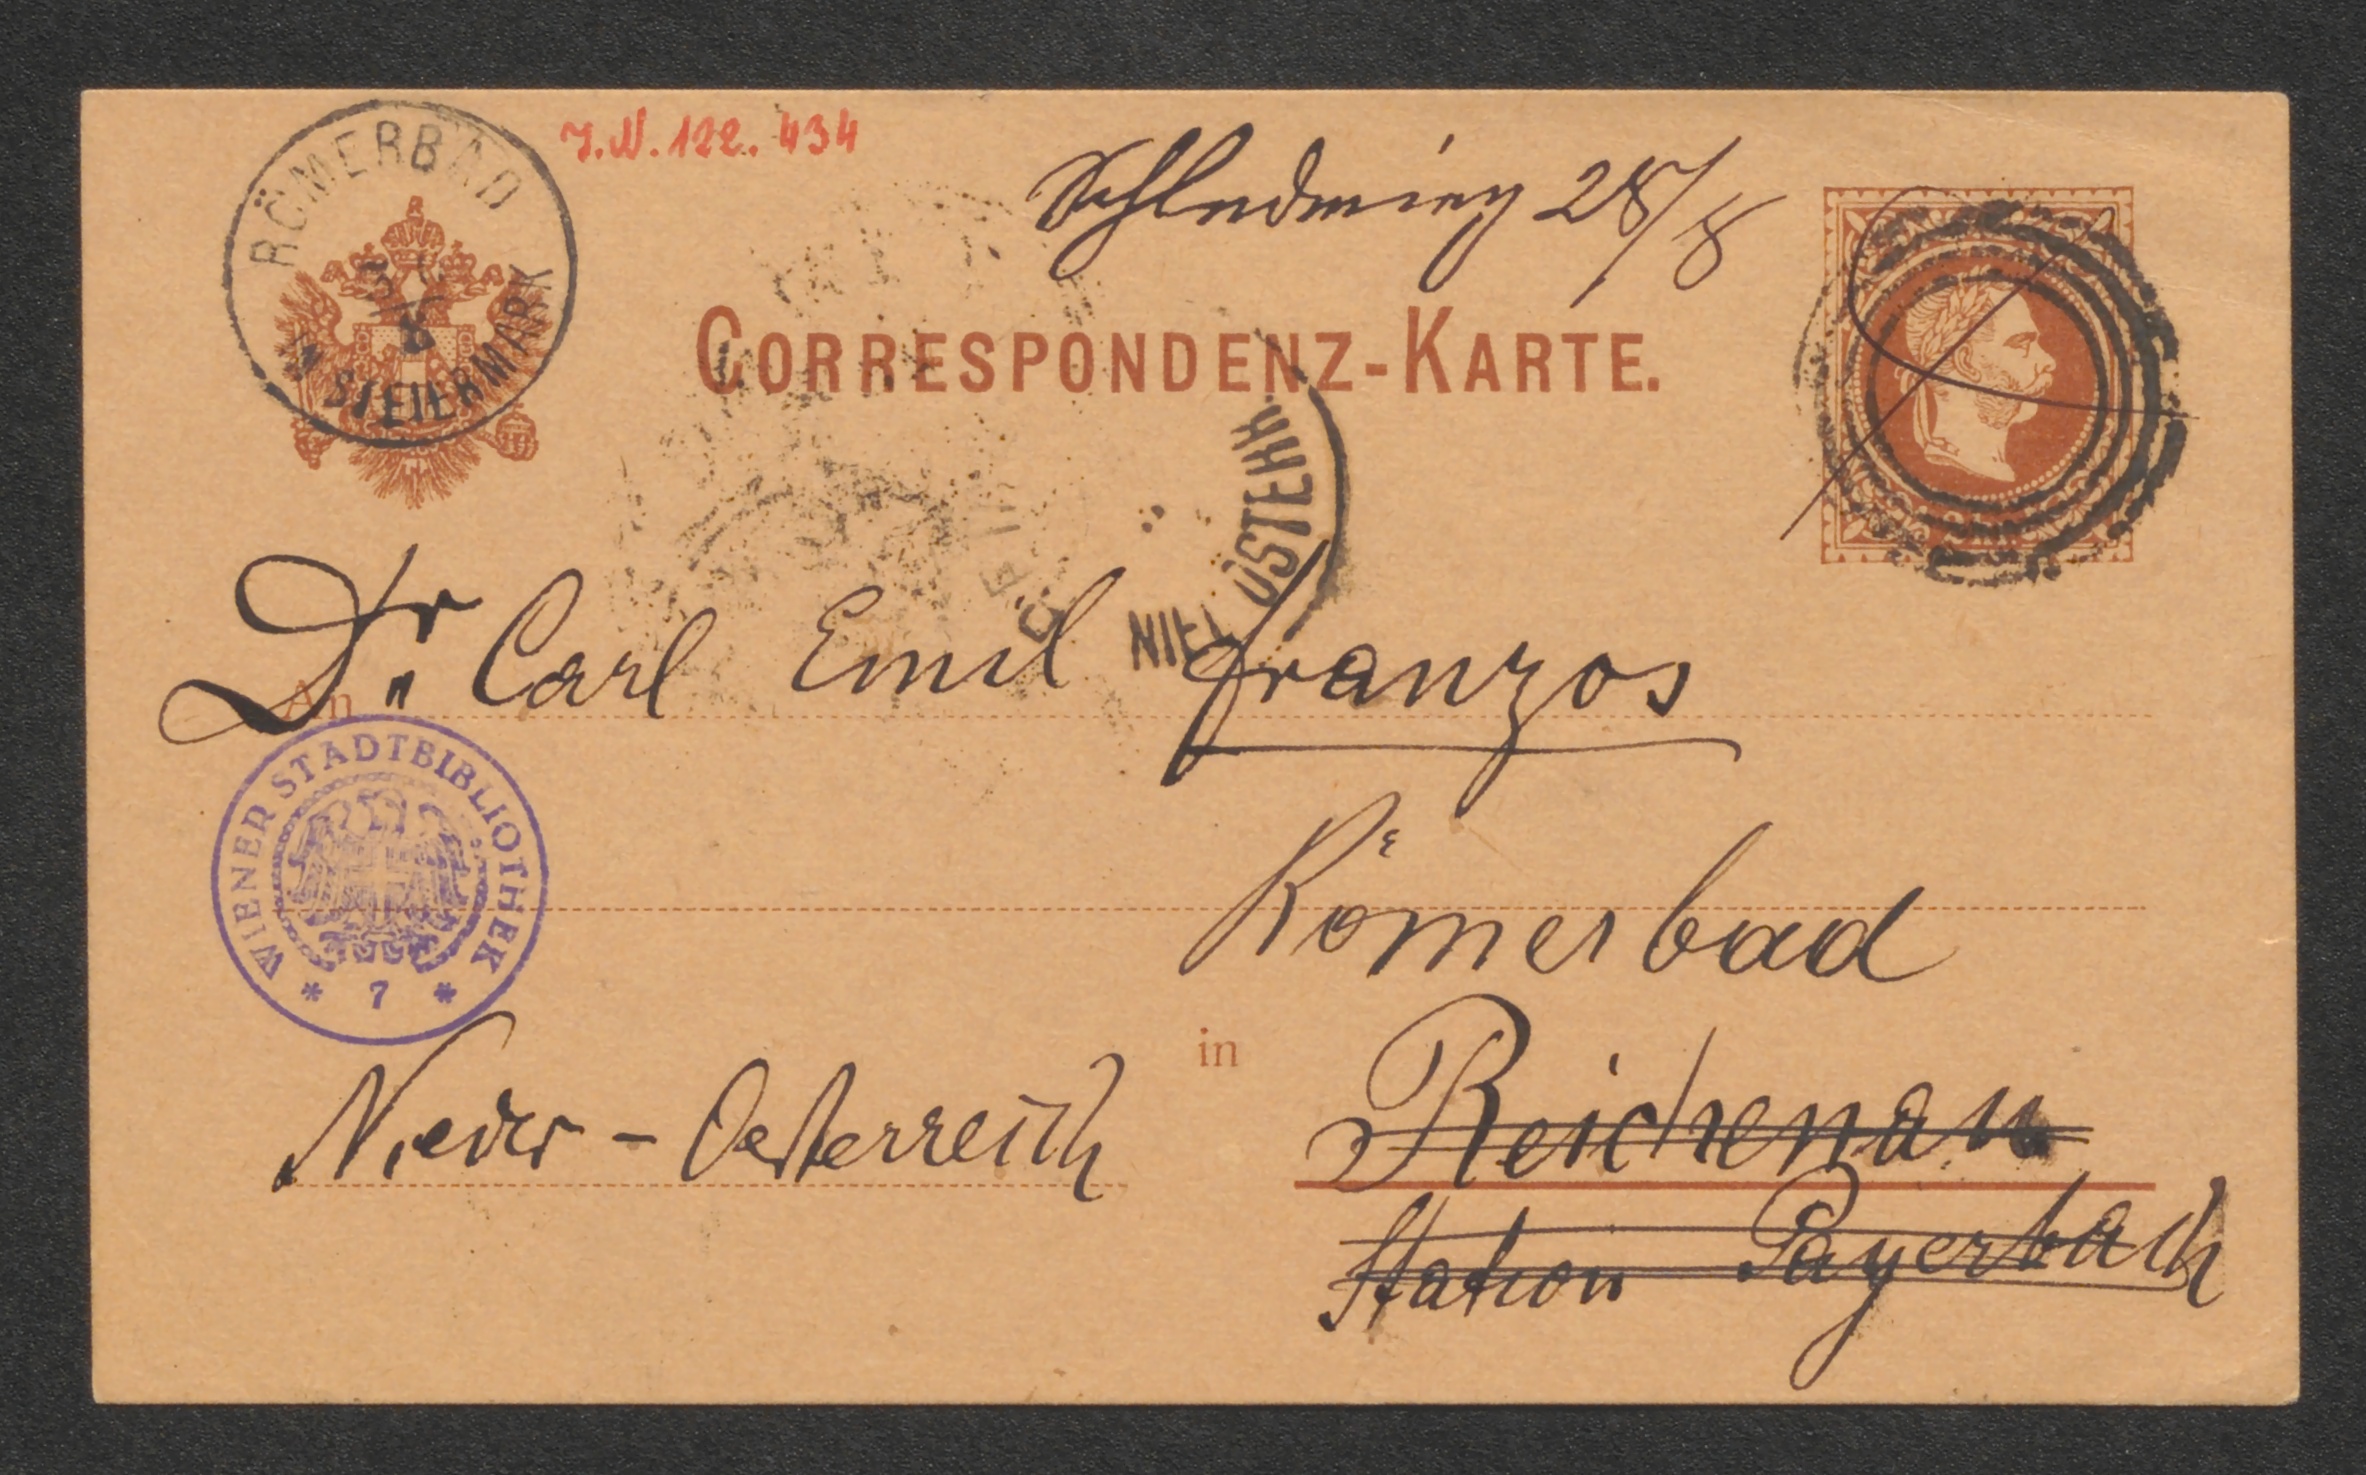 RÖMERBAD
IN STEIERMARK
J.N. 122.434
Schladming 28/8
CORRESPONDENZ-KARTE.
ÖSTERR.
An
Dr. Carl Emil Franzos
WIENER STADTBIBLIOTHEK
* 7 *
Römerbad
in
Reichenau
Nieder-Oesterreich
Station Payerbach